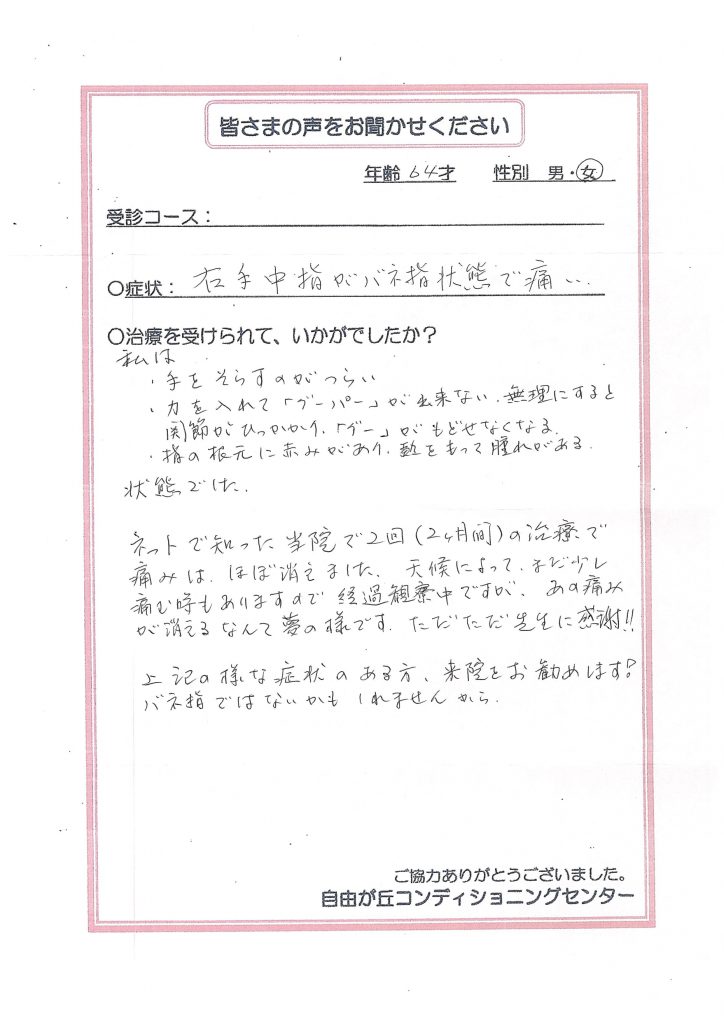 皆さまの声をお聞かせください
年齢 64才 性別 男・女
受診コース：
〇症状： 右手中指がバネ指状態で痛い..
〇治療を受けられて、いかがでしたか？
私は
・手をそらすのがつらい
・力を入れて「グーパー」が出来ない. 無理にすると
関節がひっかかり、「グー」がもどせなくなる.
・指の根元に赤みがあり. 熱をもって腫れがある.
状態でした.
ネットで知った当院で2回(2ヶ月間)の治療で
痛みは. ほぼ消えました. 天候によって. まだ少し
痛む時もありますので経過観察中ですが. あの痛み
が消えるなんて夢の様です. ただただ先生に感謝!!
上記の様な症状のある方、来院をお勧めします!
バネ指ではないかもしれませんから.
ご協力ありがとうございました。
自由が丘コンディショニングセンター